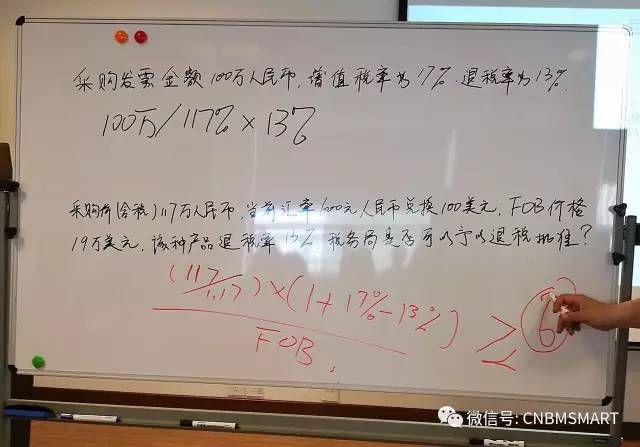 采购发票金额100万人民币,增值税率为17%.退税率为13%.
100万/117%×13%
采购价(含税)117万人民币,当前汇率600元人民币兑换100美元,FOB价格
19万美元,该种产品退税率13%,税务局是否可以予以退税批准?
(117/1.17)×(1+17%-13%)
FOB.
≥ 6
微信号: CNBMSMART